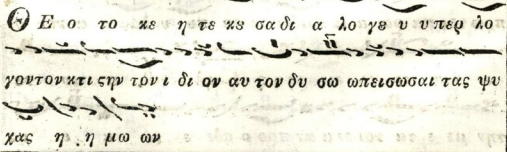 Θ Ε ο το κε η τε κε σα δι α λο γε υ υπερ λο
γον τον κτι ςην τον ι δι ον αυ τον δυ σω ωπει σωσαι τας ψυ
χας η η μω ων